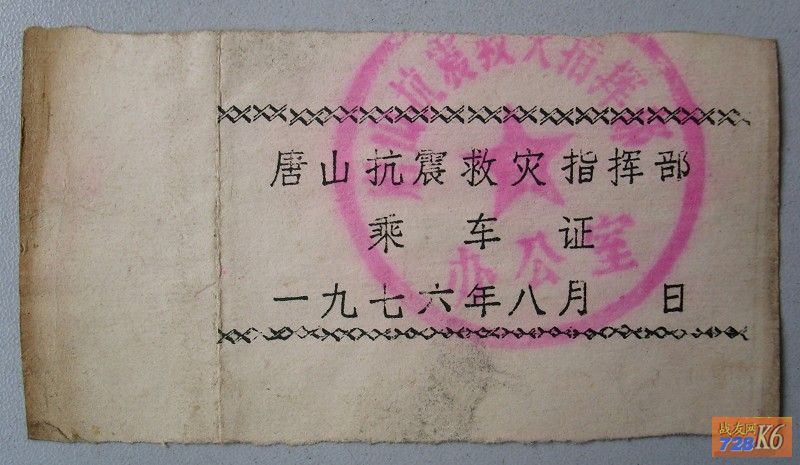 山抗震救灾指挥部
唐山抗震救灾指挥部
乘车证
一九七六年八月 日
办公室
战友网
728K6